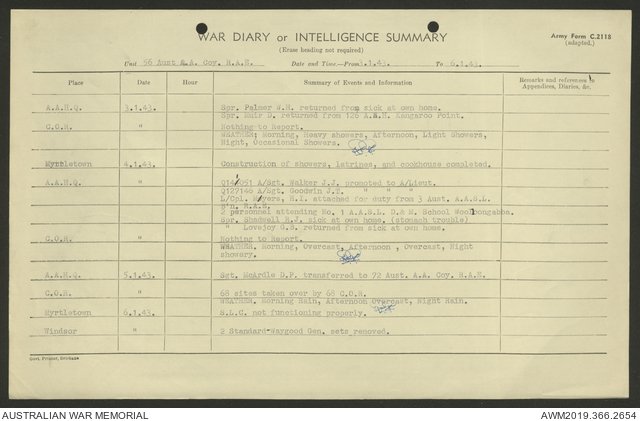 WAR DIARY or INTELLIGENCE SUMMARY
Army Form C.2118
(adapted.)
(Erase heading not required)
Unit 56 Aust A.A. Coy. R.A.E. Date and Time—From 3.1.43. To 6.1.43.
Place Date Hour Summary of Events and Information Remarks and references to Appendices, Diaries, &c.
A.A.H.Q. 3.1.43. Spr. Palmer W.H. returned from sick at own home.
Spr. Muir D. returned from 126 A.S.H. Kangaroo Point.
C.O.R. " Nothing to Report.
WEATHER; Morning, Heavy showers, Afternoon, Light Showers,
Night, Occasional Showers.
Myrtletown 4.1.43. Construction of showers, Latrines, and cookhouse completed.
A.A.H.Q. " Q14/051 A/Sgt. Walker J.J. promoted to A/Lieut.
Q127146 A/Sgt. Goodwin J.T. " " "
L/Cpl. Meyers, H.I. attached for duty from 3 Aust. A.A.S.L.
2 personnel attending No. 1 A.A.S.L. D.& M. School Woolloongabba.
Spr. Shadwall R.J. sick at own home. (stomach trouble)
" Lovejoy G.S. returned from sick at own home.
C.O.R. " Nothing to Report.
WEATHER. Morning, Overcast, Afternoon, Overcast, Night
showery.
A.A.H.Q. 5.1.43. Sgt. McArdle D.P. transferred to 72 Aust. A.A. Coy. R.A.E.
C.O.R. " 68 sites taken over by 68 C.O.R.
WEATHER. Morning Rain, Afternoon Overcast, Night Rain.
Myrtletown 6.1.43. S.L.C. not functioning properly.
Windsor " 2 Standard-Waygood Gen. sets removed.
Govt. Printer, Brisbane
AUSTRALIAN WAR MEMORIAL
AWM2019.366.2654